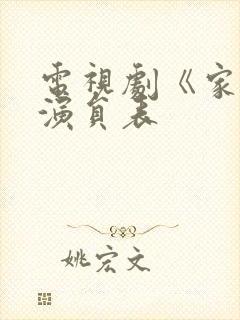 電視劇《家
演員表
姚宏文